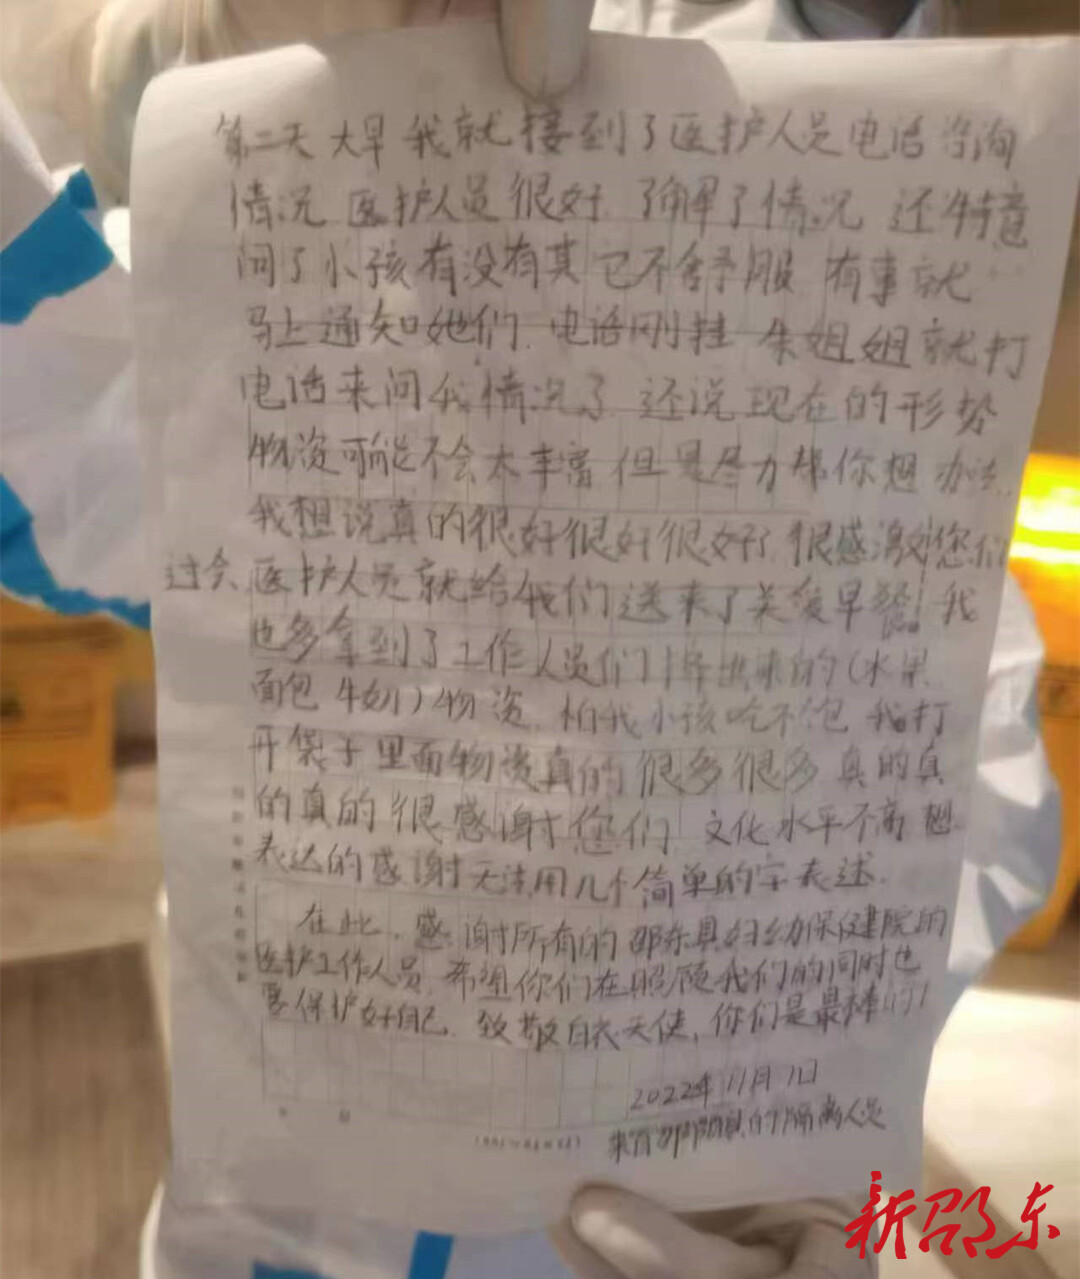 第二天 大早 我就接到了医护人员电话咨询
情况 医护人员很好 了解了情况 还特意
问了小孩有没有其它不舒服 有事就
马上通知她们. 电话刚挂 朱姐姐就打
电话来问我情况了 还说现在的形势
物资可能不会太丰富 但是尽力帮你想办法.
我想说真的很好很好很好了 很感激您们
过会 医护人员就给我们送来了美食早餐! 我
也多拿到了工作人员们 出来的(水果
面包 牛奶)物资. 怕我小孩吃不饱 我打
开袋子里面物资真的很多很多 真的真
的真的很感谢您们 文化水平不高 想
表达的感谢无法用几个简单的字表述.
在此. 感谢所有的邵东县妇幼保健院的
医护工作人员. 希望你们在照顾我们的同时也
要保护好自己. 致敬白衣天使, 你们是最棒的!
2022年11月1日
来自邵阳县的隔离人员
新邵东